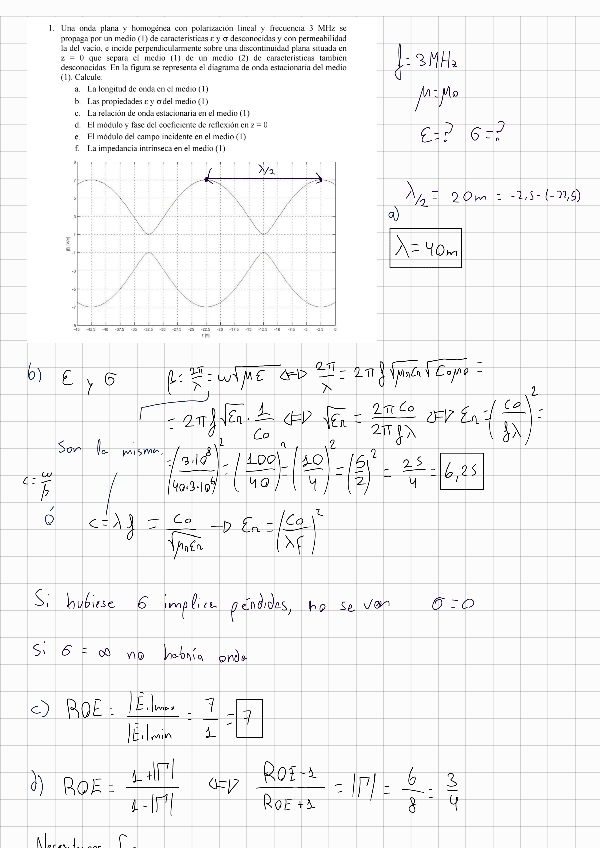 1. Una onda plana y homogénea con polarización lineal y frecuencia 3 MHz se
propaga por un medio (1) de características ε y σ desconocidas y con permeabilidad
la del vacío, e incide perpendicularmente sobre una discontinuidad plana situada en
z = 0 que separa el medio (1) de un medio (2) de características tambien
desconocidas. En la figura se representa el diagrama de onda estacionaria del medio
(1). Calcule:
a. La longitud de onda en el medio (1)
b. Las propiedades ε y σ del medio (1)
c. La relación de onda estacionaria en el medio (1)
d. El módulo y fase del coeficiente de reflexión en z = 0
e. El módulo del campo incidente en el medio (1)
f. La impedancia intrínseca en el medio (1)
f = 3 MHz
μ = μ0
ε = ? σ = ?
λ/2
a) λ/2 = 20m = -2,5-(-22,5)
λ = 40m
-45 -42.5 -40 -37.5 -35 -32.5 -30 -27.5 -25 -22.5 -20 -17.5 -15 -12.5 -10 -7.5 -5 -2.5 0
b) ε y σ β = 2π/λ = ω√με ⇔ 2π/λ = 2πf√μrεr √ε0μ0 =
= 2πf√εr · 1/c0 ⇔ √εr = 2πc0/2πfλ ⇔ εr = (c0/fλ)² =
Son la misma = (3·10⁸/40·3·10⁶)² = (100/40)² = (10/4)² = (5/2)² = 25/4 = 6,25
c = ω/β
ó c = λf = c0/√μrεr → εr = (c0/λf)²
Si hubiese σ implica pérdidas, no se ven σ = 0
Si σ = ∞ no habría onda
c) ROE = |E1|max/|E1|min = 7/1 = 7
d) ROE = 1+|Γ|/1-|Γ| ⇔ ROE-1/ROE+1 = |Γ| = 6/8 = 3/4